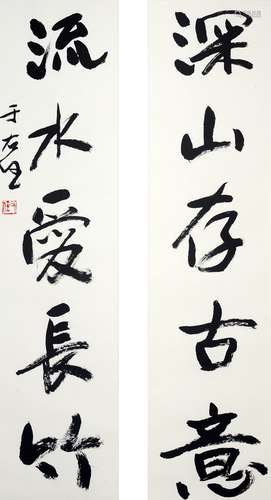 深山存古意
流水愛長竹
于右任